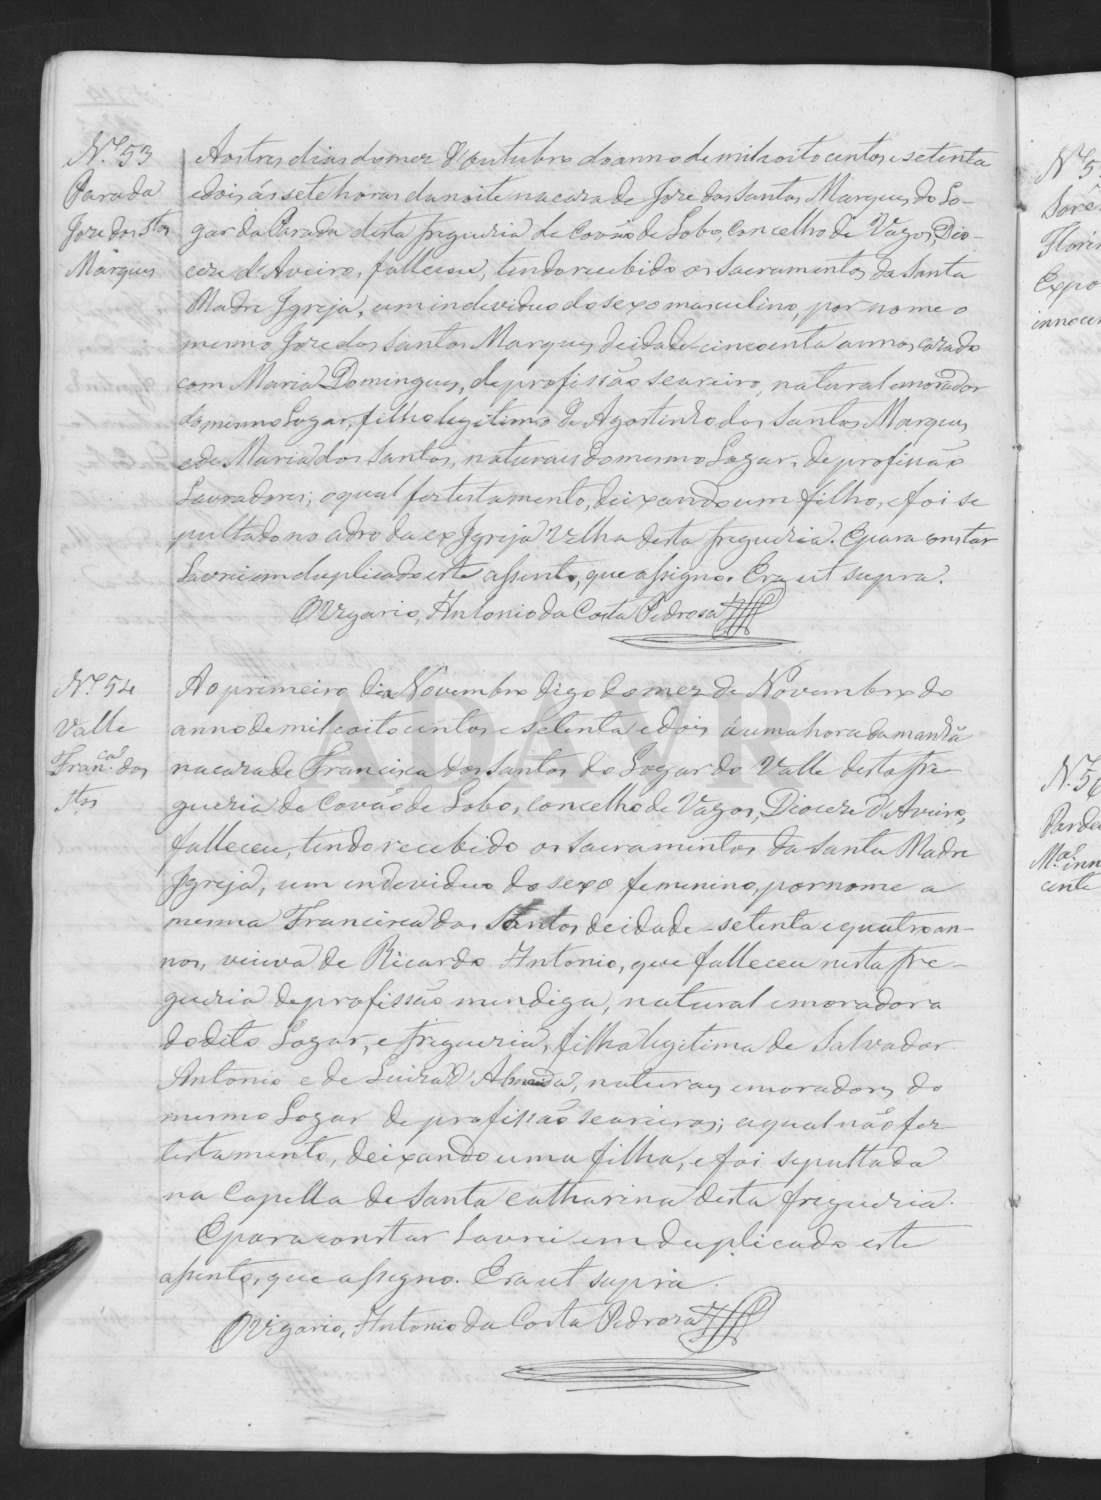 N.º 53
Parada
Joze dos Stos
Marques
Aos tres dias do mez d'outubro do anno de mil e oito centos e setenta
e dois ás sete horas da noite na caza de Joze dos Santos Marques do Lo-
gar da Parada desta freguezia de Covão de Lobo, Concelho de Vagos, Dio-
ceze de Aveiro, falleceu, tendo recebido os sacramentos da Santa
Madre Igreja, um individuo do sexo masculino, por nome o
mesmo Joze dos Santos Marques de idade - cincoenta annos cazado
com Maria Domingues, de profissão seareiro, natural e morador
do mesmo Logar, filho legitimo de Agostinho dos Santos Marques
e de Maria dos Santos, naturaes do mesmo Logar, de profissão
Lavradores; o qual fez testamento, deixando um filho, e foi se
pultado no adro da ex Igreja Velha desta freguezia. E para constar
Lavrei em duplicado este assento, que assigno. Era ut supra.
O Vigario, Antonio da Costa Pedroza
N.º 54
Valle
Fran.ca dos
Stos
Ao primeiro dia Novembro digo do mez de Novembro do
anno de mil e oito centos e setenta e dois á uma hora da manhã
na caza de Francisca dos Santos do Logar do Valle desta fre-
guezia de Covão de Lobo, Concelho de Vagos, Dioceze d'Aveiro,
falleceu, tendo recebido os sacramentos da Santa Madre
Igreja, um endeviduo do sexo femenino, por nome a
mesma Francisca dos Santos de idade - setenta e quatro an-
nos, viuva de Ricardo Antonio, que falleceu nesta fre-
guezia de profissão mendiga, natural e moradora
do dito Logar, e freguezia, filha legitima de Salvador
Antonio e de Luiza d'Almeida, naturaes e moradores do
mesmo Logar de profissão seareiros; a qual não fez
testamento, deixando uma filha, e foi sepultada
na Capella de Santa Catharina desta freguezia.
E para constar Lavrei em duplicado este
assento, que assigno. Era ut supra.
O Vigario, Antonio da Costa Pedroza
ADAVR
N.º 5
Flori
Expo
innocen
N.º 56
M.a inn
cente